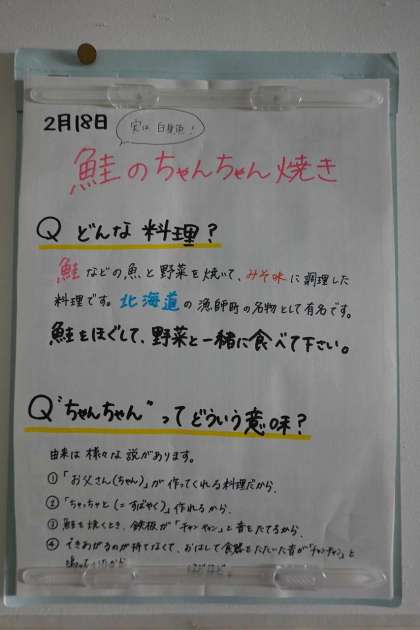 2月18日
実は 白身魚!
鮭のちゃんちゃん焼き
Q どんな 料理?
鮭などの魚と野菜を焼いて、みそ味に調理した
料理です。北海道の漁師町の名物として有名です。
鮭をほぐして、野菜と一緒に食べて下さい。
Q "ちゃんちゃん" って どういう意味?
由来は 様々な 説があります。
①「お父さん(ちゃん)」が 作ってくれる料理だから、
②「ちゃっちゃと(=すばやく)」作れるから、
③ 鮭を焼くとき、鉄板が「チャンチャン」と音をたてるから、
④ できあがるのが待てなくて、おはしで食器をたたいた音が「チャンチャン」と
鳴っていたから などなど